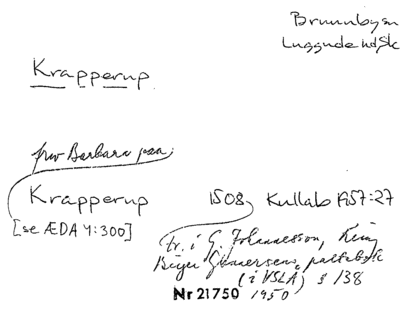 Brunnbysn
Luggude hd Sk
Krapperup
frw Barbara paa:
Krapperup 1508 Kullab 1957:27
[se ÆDA 4:300]
tr. i G. Johannesson, Kring
Birger Gunnersens palteb
(i VSLÅ) s 138
Nr 21750 1950